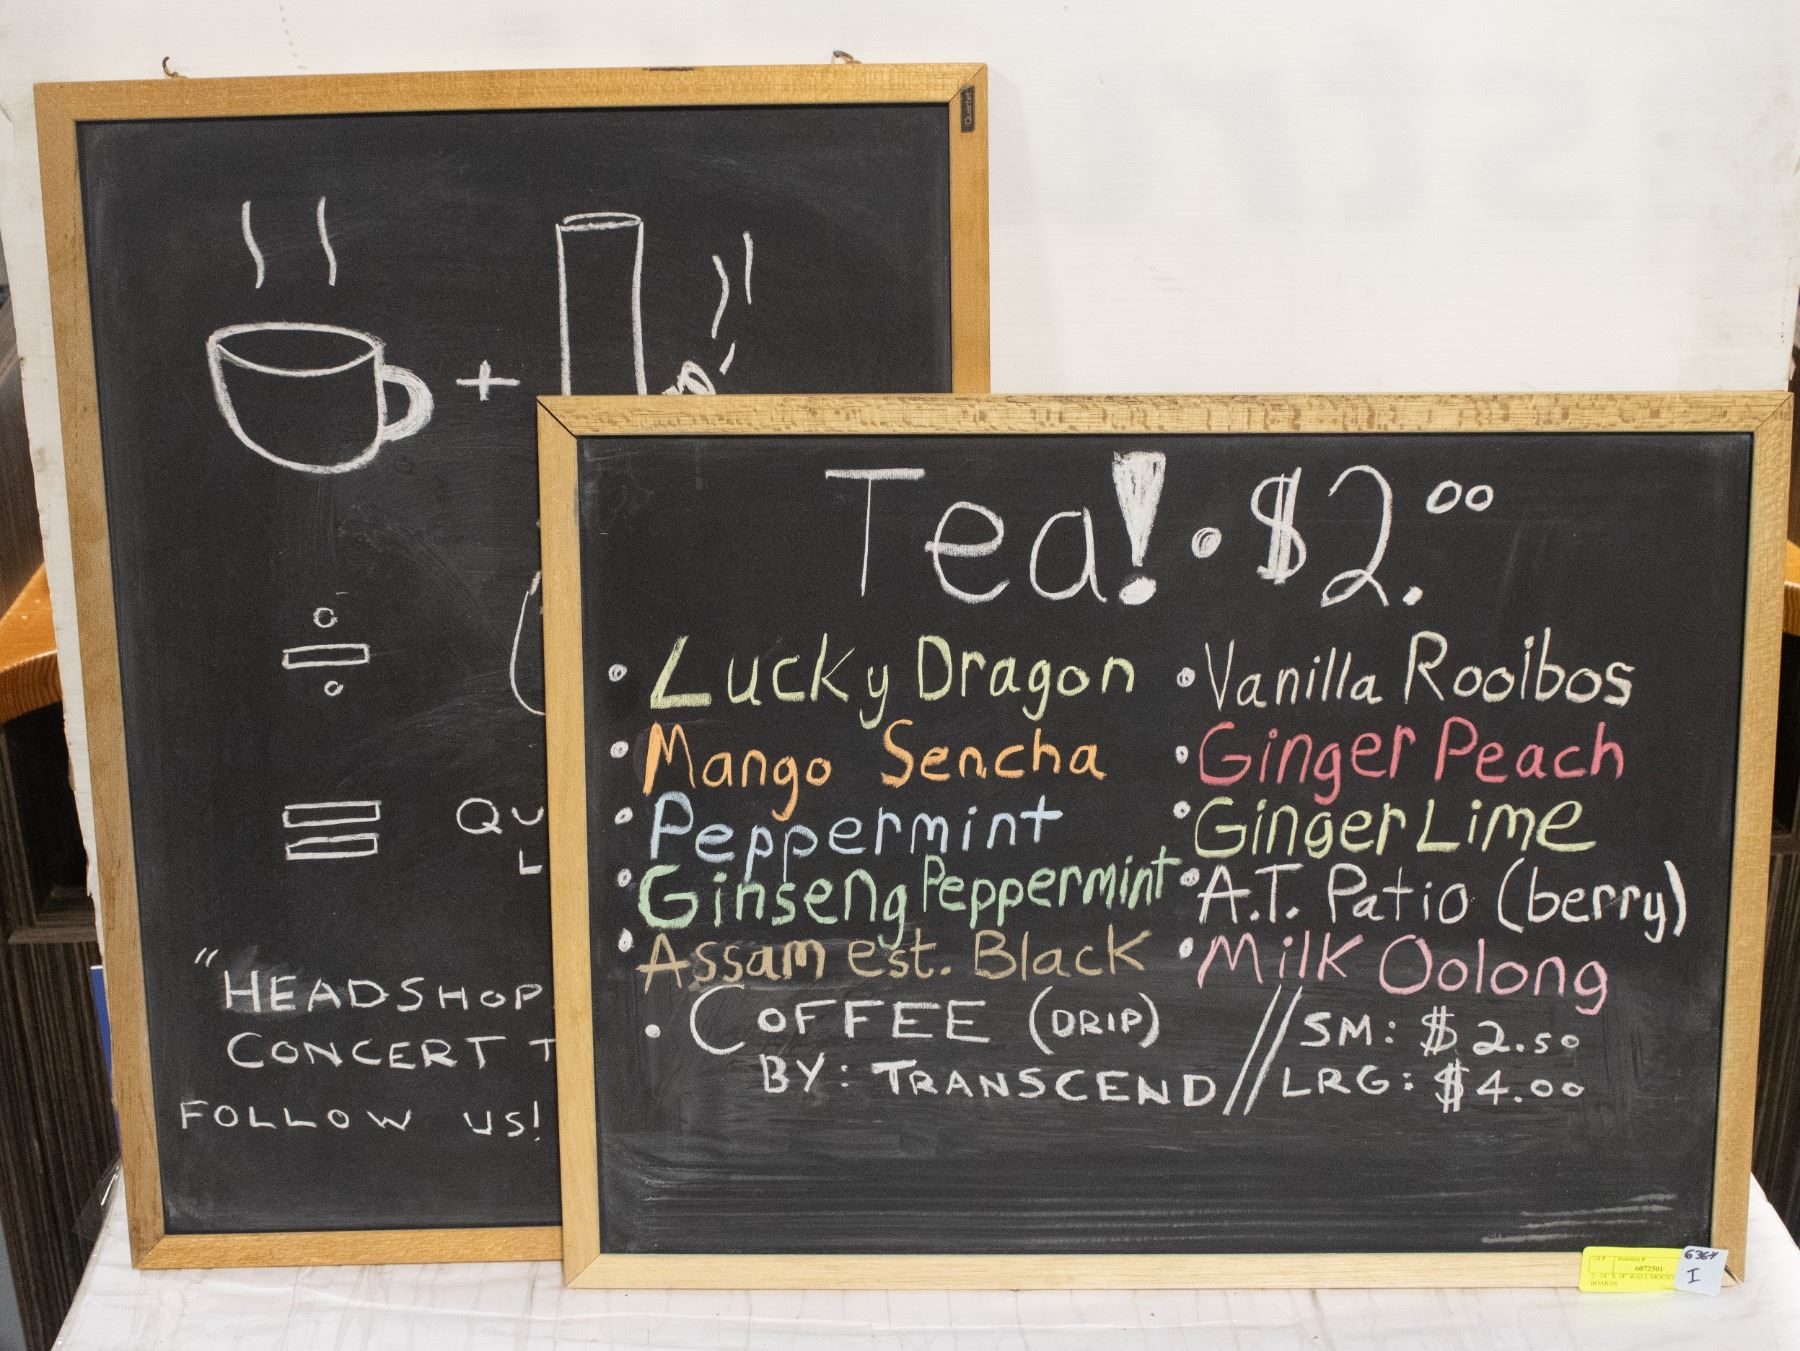 Quartet
+
÷
= QU
L
"HEADSHOP
CONCERT T
FOLLOW US!
Tea! • $2.00
• Lucky Dragon
• Mango Sencha
• Peppermint
• Ginseng Peppermint
• Assam est. Black
• Vanilla Rooibos
• Ginger Peach
• Ginger Lime
• A.T. Patio (berry)
• Milk Oolong
• COFFEE (DRIP) // SM: $2.50
BY: TRANSCEND // LRG: $4.00
6072501
BOARDS
I